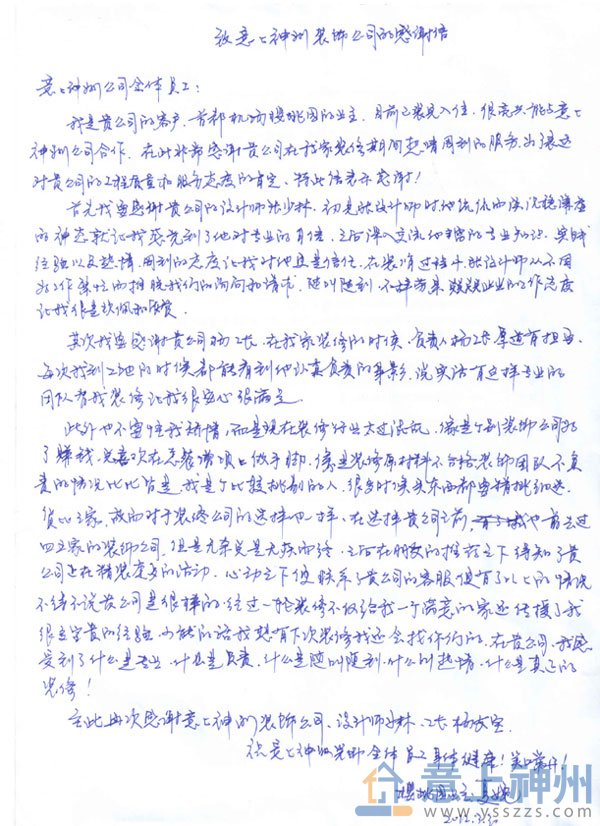 致意上神州装饰公司的感谢信
意上神州公司全体员工：
我是贵公司的客户，首都机场樱桃园的业主，目前已装完入住，很高兴能与意上
神州公司合作，在此非常感谢贵公司在我家装修期间热情周到的服务，出于这
对贵公司的工程质量和服务态度的肯定，特此信表示感谢！
首先我要感谢贵公司的设计师张少林，初见张设计师时他侃侃而谈沉稳
的神态就让我感觉到了他对专业的自信，之后深入交流他丰富的专业知识、实践
经验以及热情、周到的态度让我对他更是信任，在装修过程中，张设计师从不因
工作繁忙而推脱我们的询问和请求，随叫随到，不辞劳累，兢兢业业的工作态度
让我很是钦佩和欣赏
其次我要感谢贵公司杨工长，在我家装修的时候，负责人杨工长厚道有担当，
每次我到工地的时候都能看到他认真负责的身影，说实话有这样专业的
团队帮我装修让我很安心很满意
此外也不要怪我矫情，而是现在装修行业太过混乱，像是个别装饰公司为
了赚钱，总喜欢在总装增项上做手脚，像是装修原材料不合格装饰团队不负
责的情况比比皆是，我是个比较挑剔的人，很多时候买东西都要精挑细选，
货比三家，故而对于装修公司的选择也一样，在选择贵公司之前，也曾去过
四五家的装饰公司，但是无奈总是无疾而终，之后在朋友的推荐之下得知了贵
公司正在精装交房的活动，心动之下便联系了贵公司的客服便有了以上的情况
不得不说贵公司是很棒的，经过一轮装修不仅给我一个满意的家还传授了我
很多宝贵的经验，可能的话我想有下次装修我还会找你们的，在贵公司，我感
受到了什么是专业，什么是负责，什么是随叫随到，什么叫热情，什么是真正的
装修！
在此再次感谢意上神州装饰公司、设计师少林、工长杨
祝意上神州装饰全体员工身体健康！笑口常开！
樱桃园业主
意上神州
www.ysszzs.com